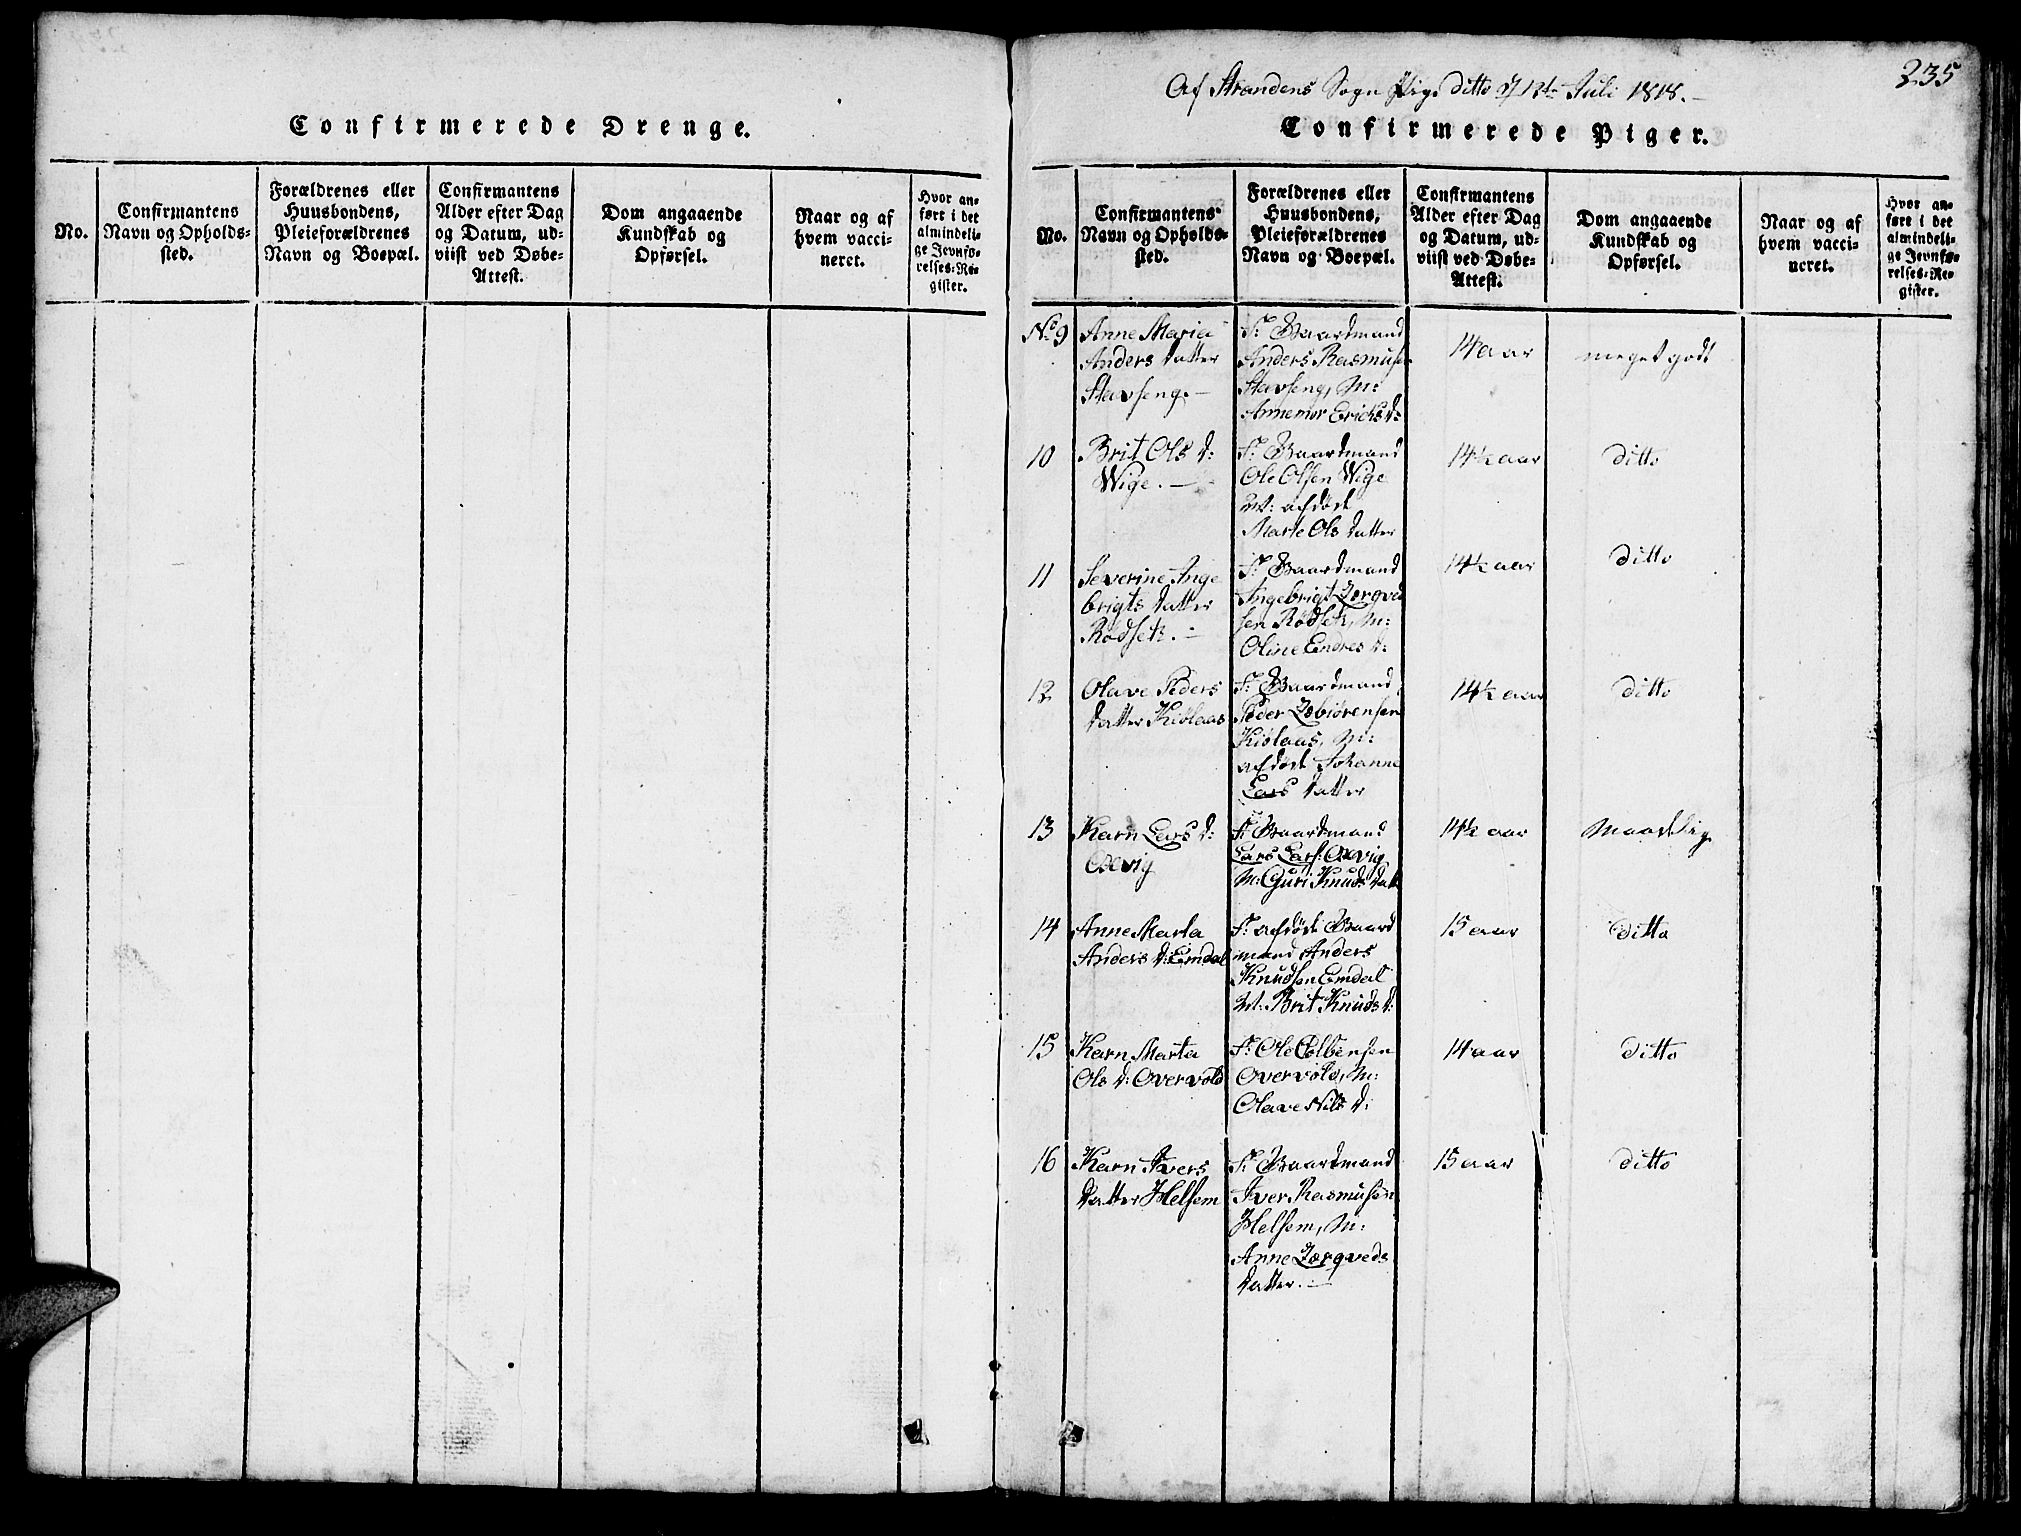 Confirmerede Drenge.
No.
Confirmantens
Navn og Opholds-
sted.
Forældrenes eller
Huusbondens,
Pleieforældrenes
Navn og Boepæl.
Confirmantens
Alder efter Dag
og Datum, ud-
viist ved Døbe-
Attest.
Dom angaaende
Kundskab og
Opførsel.
Naar og af
hvem vacci-
neret.
Hvor an-
ført i det
almindeli-
ge Jevnfø-
relses-Re-
gister.
235
Af Strandens Sogn Pig. ditto d 12te Juli 1818.
Confirmerede Piger.
No.
Confirmantens
Navn og Opholds-
sted.
Forældrenes eller
Huusbondens,
Pleieforældrenes
Navn og Boepæl.
Confirmantens
Alder efter Dag
og Datum, ud-
viist ved Døbe-
Attest.
Dom angaaende
Kundskab og
Opførsel.
Naar og af
hvem vacci-
neret.
Hvor an-
ført i det
almindeli-
ge Jevnfø-
relses-Re-
gister.
No 9
Anne Maria
Anders datter
Stavseng. —
F: Gaardmand
Anders Rasmusen
Stavseng, M:
Annemor Erichs d:
14 aar
meget godt
10
Brit Ols d:
Wige. —
F: Gaardmand
Ole Olsen Wige
M: afdøde
Marte Ols datter
14½ aar
ditto
11
Severine Inge
brigts datter
Rødsetr. —
F: Gaardmand
Ingebrigt Zerqved
sen Rødsetr, M:
Oline Endres d:
14½ aar
ditto
12
Olave Peders
datter Kiølaas
F: Gaardmand
Peder Esbiørensen
Kiølaas, M:
afdøde Johanne
Lars datter
14½ aar
ditto
13
Karn Lars d:
Oxvig
F: Gaardmand
Lars Lars: Oxvig
M: Guri Knuds datt
14½ aar
Maadelig
14
Anne Marta
Anders d: Emdal
F: afdøde Gaard
mand Anders
Knudsen Emdal
M: Brit Knuds d:
15 aar
ditto
15
Karn Marta
Ols d: Overvold
F: Ole Colbensen
Overvold, M:
Olave Nils d:
14 aar
ditto
16
Karn Ivers
datter Helsem
F: Gaardmand
Iver Rasmusen
Helsem, M:
Anne Zerqveds
datter. —
15 aar
ditto